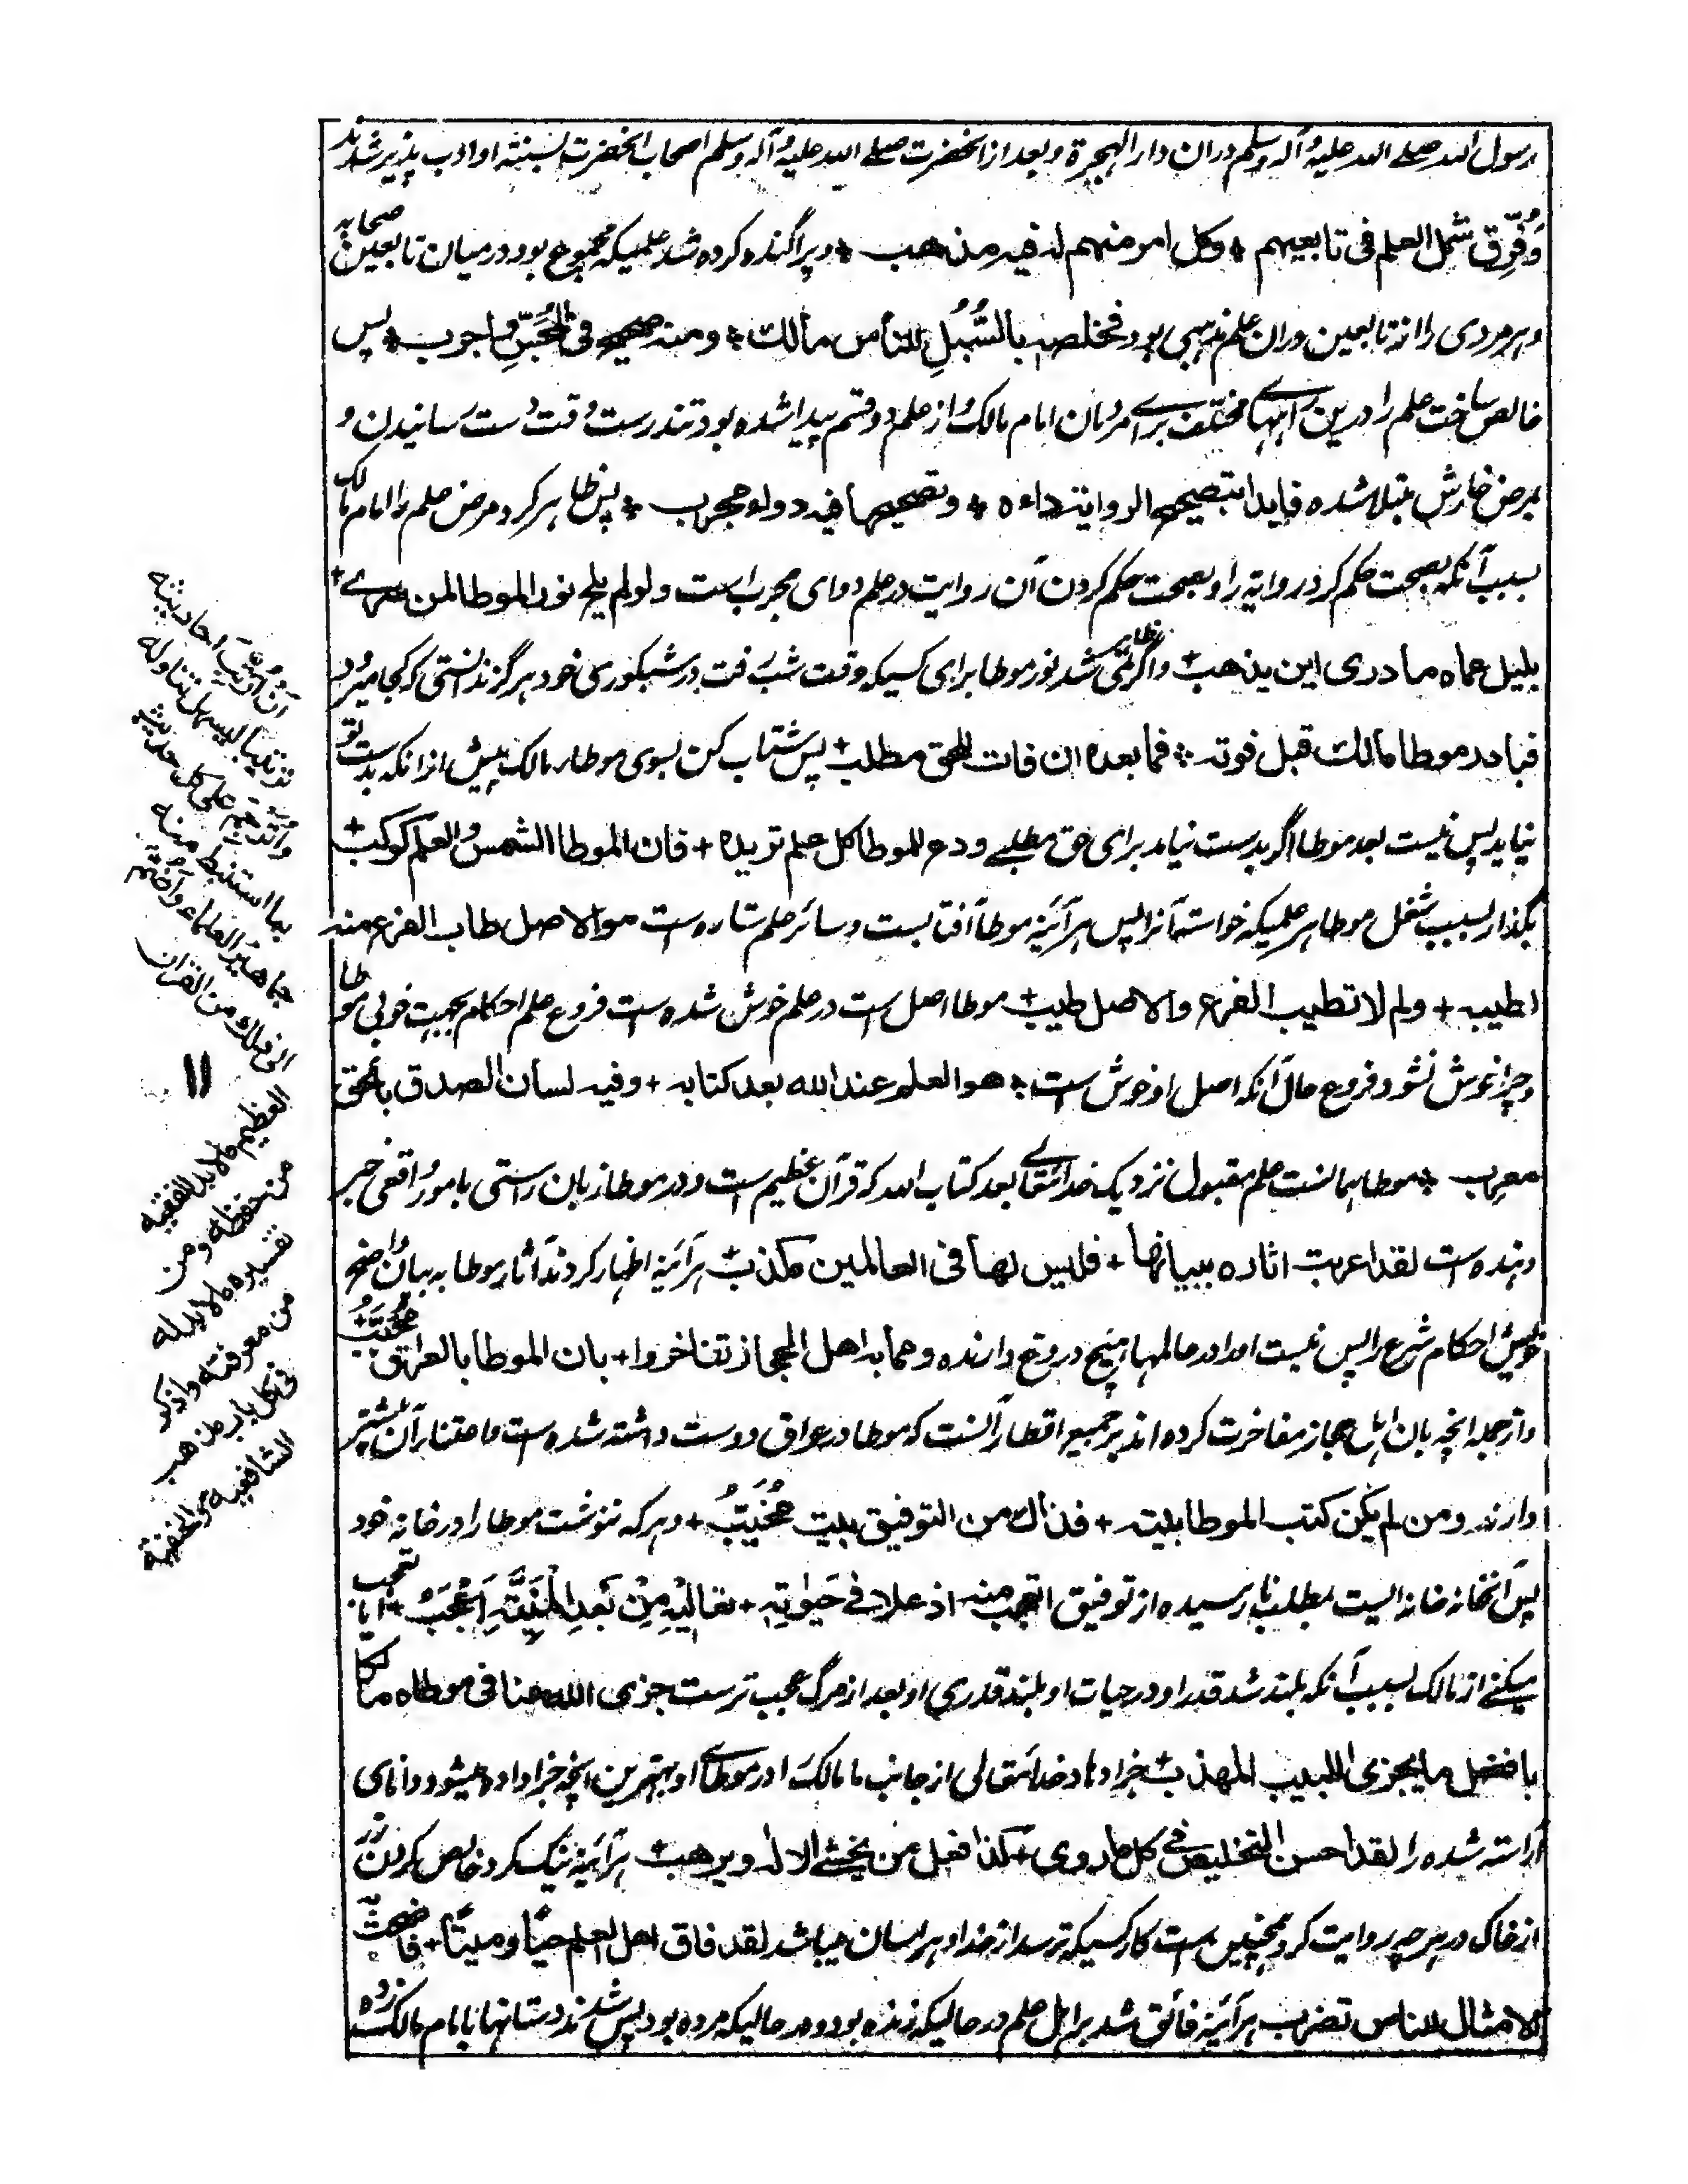 رسول الله صلے الله علیه وآله وسلم دران دار الهجرة وبعد از آنحضرت صلے الله علیه وآله وسلم اصحاب آنحضرت بسنته او ادب پذیر شدند
وَفُرِّق شمل العلم فی تابعیهم + وکل امرء منهم له فیه مذهب + وپراگنده کرده شد علمیکه مجموع بود درمیان تابعین صحابه
وهر مردی را از تابعین دران علم مذهبی بود فخلصه بالسُّبُلِ للناس مالك + ومنه صحیح فی المجس واجرب + پس
خالص ساخت علم را درین راههاے مختلف براے مردمان امام مالک واز علم دو قسم پیدا شده بود تندرست وقت دست رسانیدن و
بمرض خارش مبتلا شده فابدا بتصحیح الروایة داءه + وتصحیحها فیه دواء مجرب + پس ظاهر کرد مرض علم را امام مالک
بسبب آنکه بصحت حکم کرد روایة را وبصحت حکم کردن آن روایت در علم دوای مجرب است ولو لم یلح نور الموطا لمن سرے +
بلیل عماه ما دری این یذهب + واگر ظاهر نمی شد نور موطا برای کسیکه وقت شب رفت در شبکوری خود هرگز ندانستی که کجا میرود
فبادر موطا مالك قبل فوته + فما بعده ان فات للحق مطلب + پس شتاب کن بسوی موطاء مالک پیش ازانکه بدست تو
نیاید پس نیست بعد موطا اگر بدست نیاید برای حق مطلبے ودع للموطا کل علم تریده + فان الموطا الشمس والعلم کوکب +
بگذار بسبب شغل موطا هر علمیکه خواسته آنرا پس هر آئینه موطا آفتابست وسائر علم ستاره است هو الاصل طاب الفرع منه
لطیبه + ولم لا تطیب الفرع والاصل طیب + موطا اصل است در علم خوش شده است فروع علم احکام بجهت خوبی موطا
وچرا خوش نشود فروع حال آنکه اصل او خوش است + هو العلم عند الله بعد کتابه + وفیه لسان الصدق بالحق
معرب + موطا همانست علم مقبول نزدیک خدائتعالے بعد کتاب الله که قرآن عظیم است ودر موطا زبان راستی بامور واقعی خبر
دهنده است لقد اعربت اثاره ببیانها + فلیس لها فی العالمین مکذب + هر آئینه اظهار کردند آثار موطا به بیان واضح
خویش احکام شرع را پس نیست اورا در عالمها هیچ دروغ دارنده ومما به اهل الحجاز تفاخروا + بان الموطا بالعراق مُحَبَّبُ +
واز جمله آنچه بآن اهل حجاز مفاخرت کرده اند بر جمیع اقطار آنست که موطا در عراق دوست داشته شده است واعتنا بآن بیشتر
دارند ومن لم یکن کتب الموطا ببیته + فذاك من التوفیق بیت مُخَیَّبُ + وهر که ننوشت موطا را در خانه خود
پس آنخانه خانه ایست بمطلب نا رسیده از توفیق اتعجب منه اذ علا فی حیٰوته + تعالیه من بَعدِ المنیَّةِ اَعْجَبُ + آیا تعجب
میکنے از مالک بسبب آنکه بلند شد قدر او در حیات او بلند قدری او بعد از مرگ عجیب ترست جزی الله عنا فی موطاه مالکا
بافضل ما یجزی اللبیب المهذب + جزا دهاد خدائتعالی از جانب ما مالک را در موطاے او بهترین آنچه جزا داده میشود دانای
آراسته شده را لقد احسن التخلیص فی کل ما روی + کذا فعل من یخشے الاله ویرهب + هر آئینه نیک کرد خالص کردن زر
از خاک در هر چه روایت کرد همچنین است کار کسیکه ترسد از خدا وهراسان میباشد لقد فاق اهل العلم حیًا ومیتًا + فاضحت
الامثال للناس تضرب هر آئینه فائق شد بر اهل علم در حالیکه زنده بود ودر حالیکه مرده بود پس شدند دستانها بامام مالک زده
آن اُرَتِّبَ احادیثه
ترتیبا لیسهل تناوله
واُترجم علی کل حدیث
بما استنبط منه
جماهیر العلماء واضم
الی ذلك من القرآن
العظیم ما لا بد للفقیه
من حفظه ومن
تفسیره ما لا بد له
من معرفته واذکر
فی کل باب مذهب
الشافعیة والحنفیة
۱۱